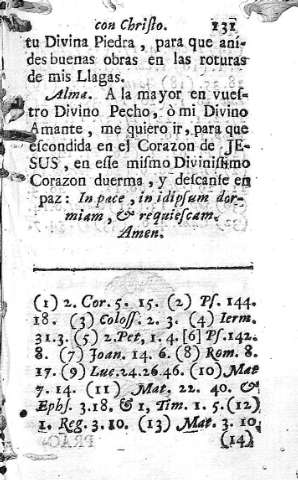 con Christo. 131
tu Divina Piedra, para que ani-
des buenas obras en las roturas
de mis Llagas.
Alma. A la mayor en vues-
tro Divino Pecho, ò mi Divino
Amante, me quiero ir, para que
escondida en el Corazon de JE-
SUS, en esse mismo Divinissimo
Corazon duerma, y descanse en
paz: In pace, in idipsum dor-
miam, & requiescam.
Amen.
(1) 2. Cor. 5. 15. (2) Ps. 144.
18. (3) Coloss. 2. 3. (4) Ierm.
31.3. (5) 2.Pet, 1. 4. [6] Ps.142.
8. (7) Joan. 14. 6. (8) Rom. 8.
17. (9) Luc.24.26.46. (10) Mat
7. 14. (11) Mat. 22. 40. &
Ephs. 3.18. & 1, Tim. 1. 5. (12)
1. Reg. 3. 10. (13) Mat. 3. 10.
(14)